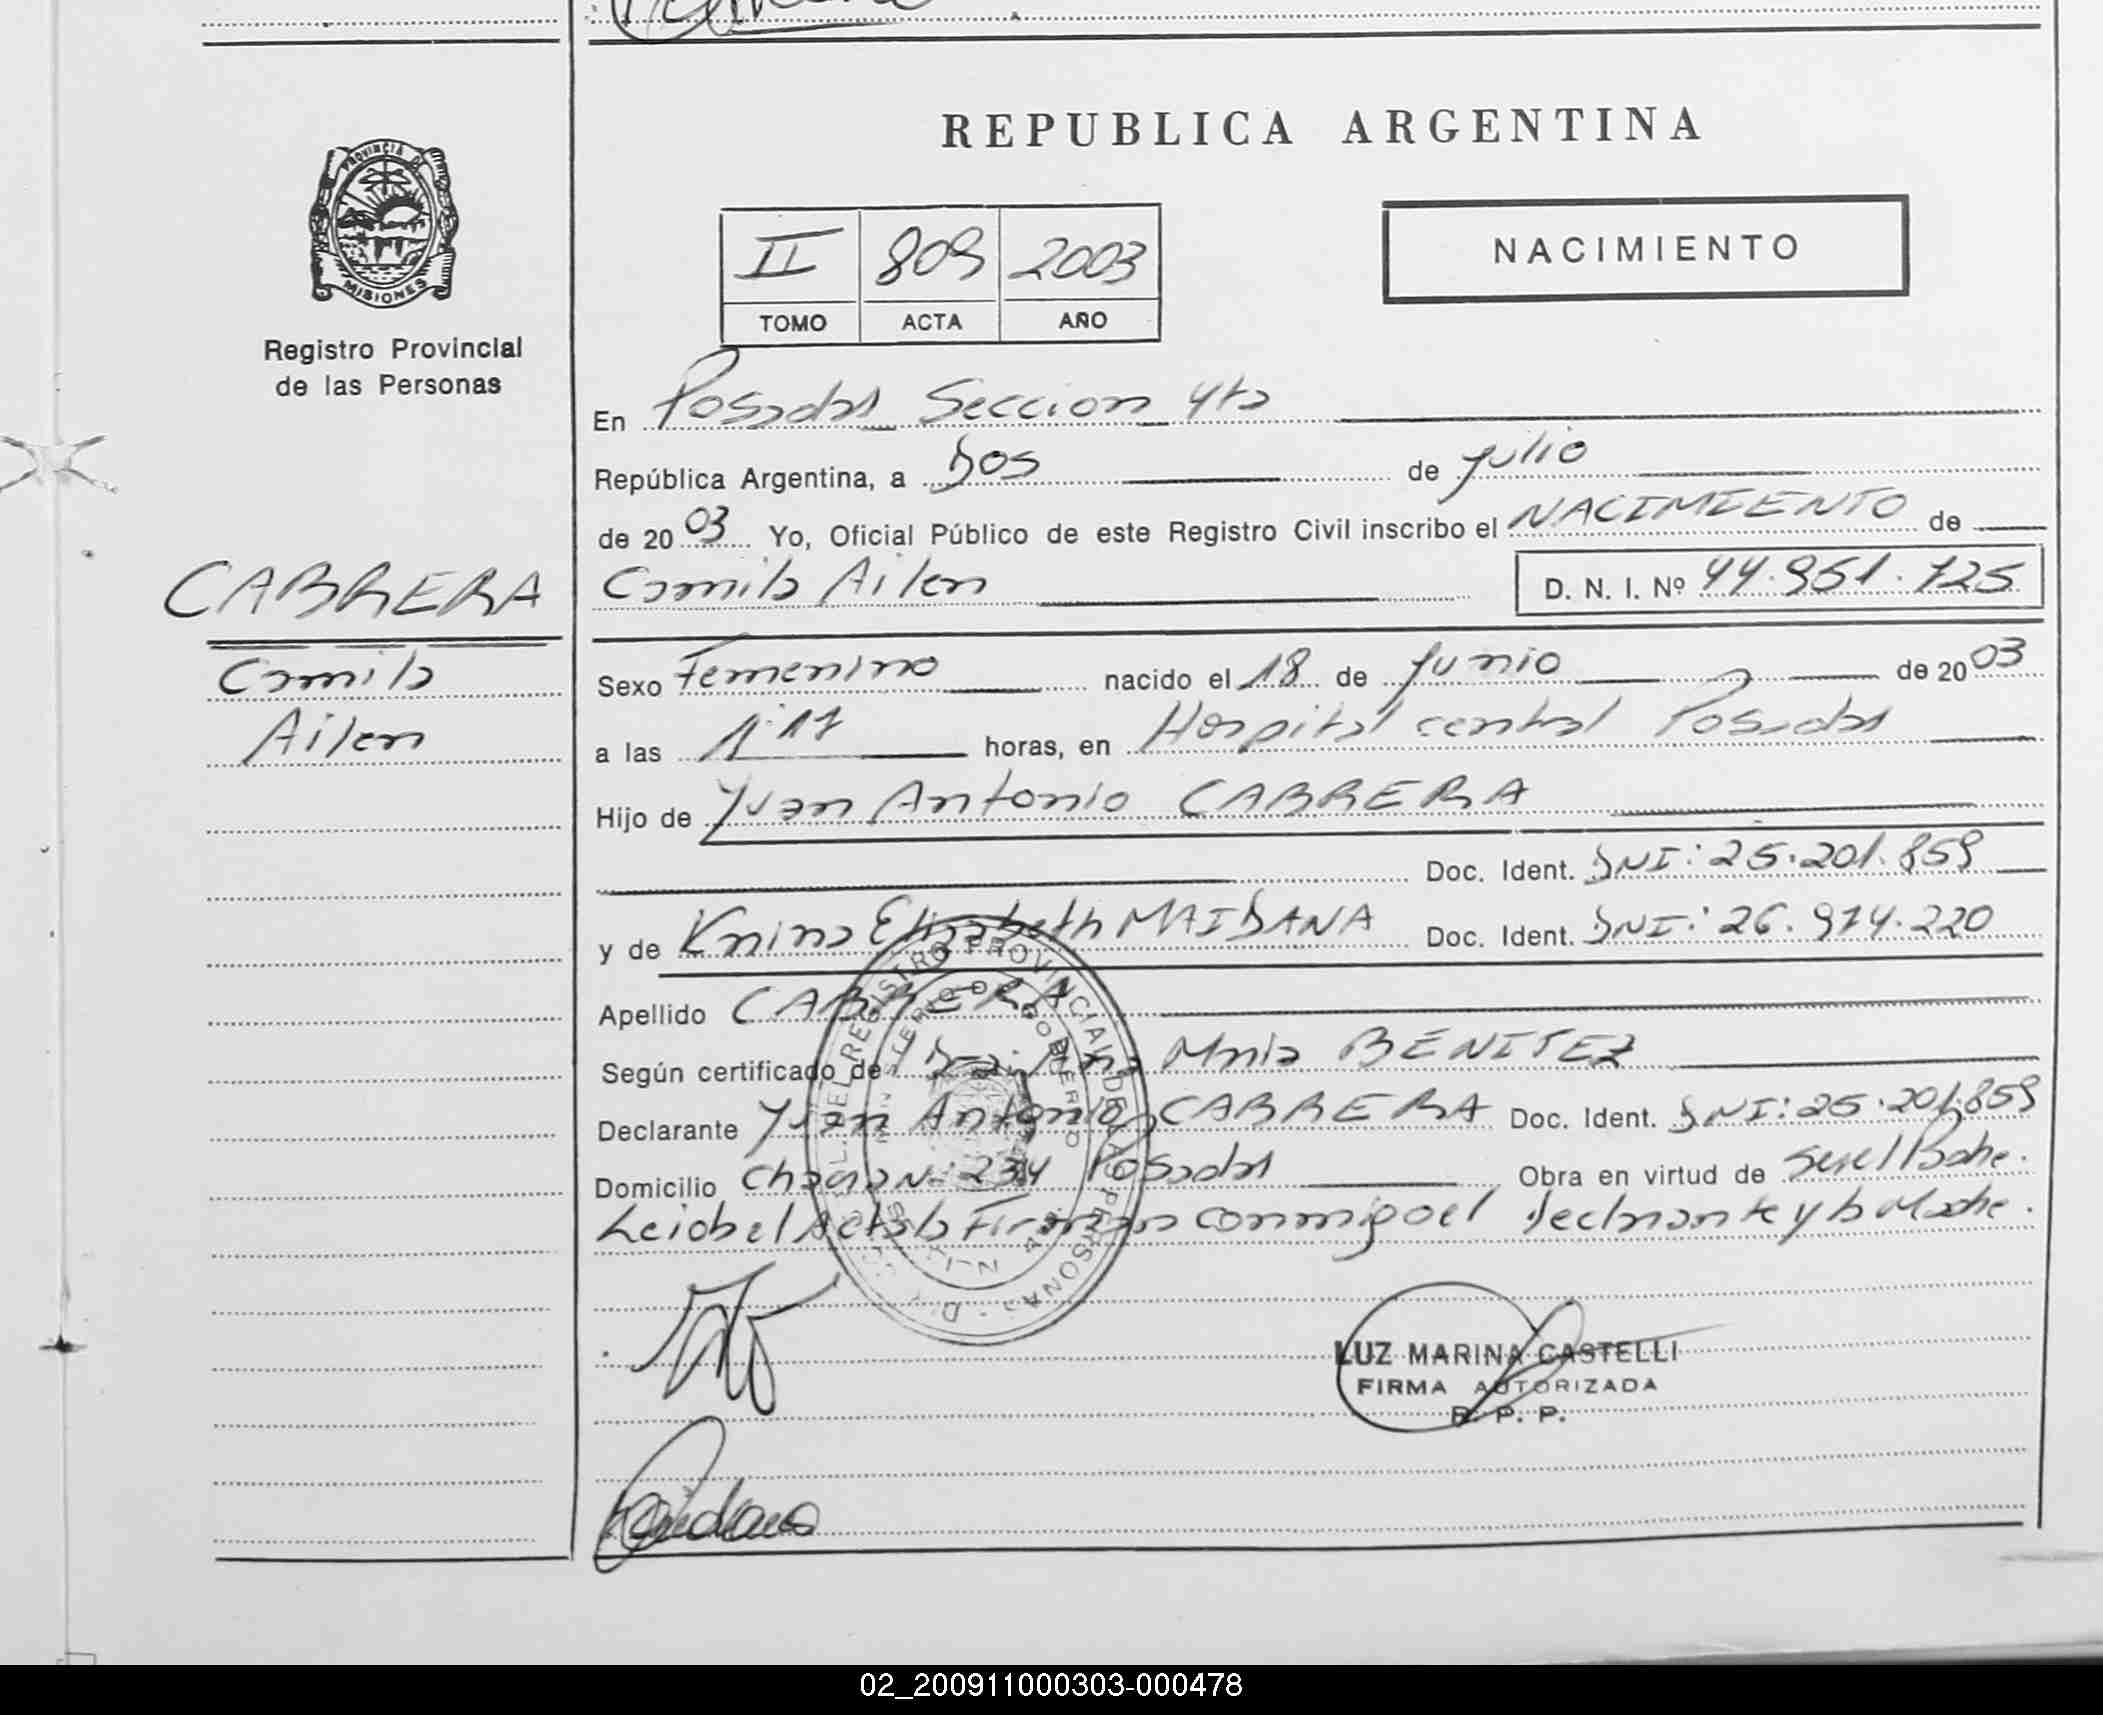 REPUBLICA ARGENTINA
PROVINCIA DE
MISIONES
Registro Provincial
de las Personas
II 809 2003
TOMO ACTA AÑO
NACIMIENTO
En Posadas Seccion 4ta
República Argentina, a Dos de Julio
de 2003 Yo, Oficial Público de este Registro Civil inscribo el NACIMIENTO de
CABRERA
Camila Ailen D. N. I. Nº 44.951.725
Camila
Ailen
Sexo Femenino nacido el 18 de Junio de 2003
a las 1:17 horas, en Hospital central Posadas
Hijo de Juan Antonio CABRERA
Doc. Ident. DNI: 25.201.859
y de Karina Elizabeth MAIDANA Doc. Ident. DNI: 26.974.220
Apellido CABRERA
Según certificado de Dra. Ana Maria BENITEZ
Declarante Juan Antonio CABRERA Doc. Ident. DNI: 25.201.859
Domicilio Chacra N: 234 Posadas Obra en virtud de ser el Padre.
Leida el Acta la Firman conmigo el declarante y la Madre.
REGISTRO PROVINCIAL DE LAS PERSONAS
MINISTERIO DE GOBIERNO
LUZ MARINA CASTELLI
FIRMA AUTORIZADA
R. P. P.
02_200911000303-000478